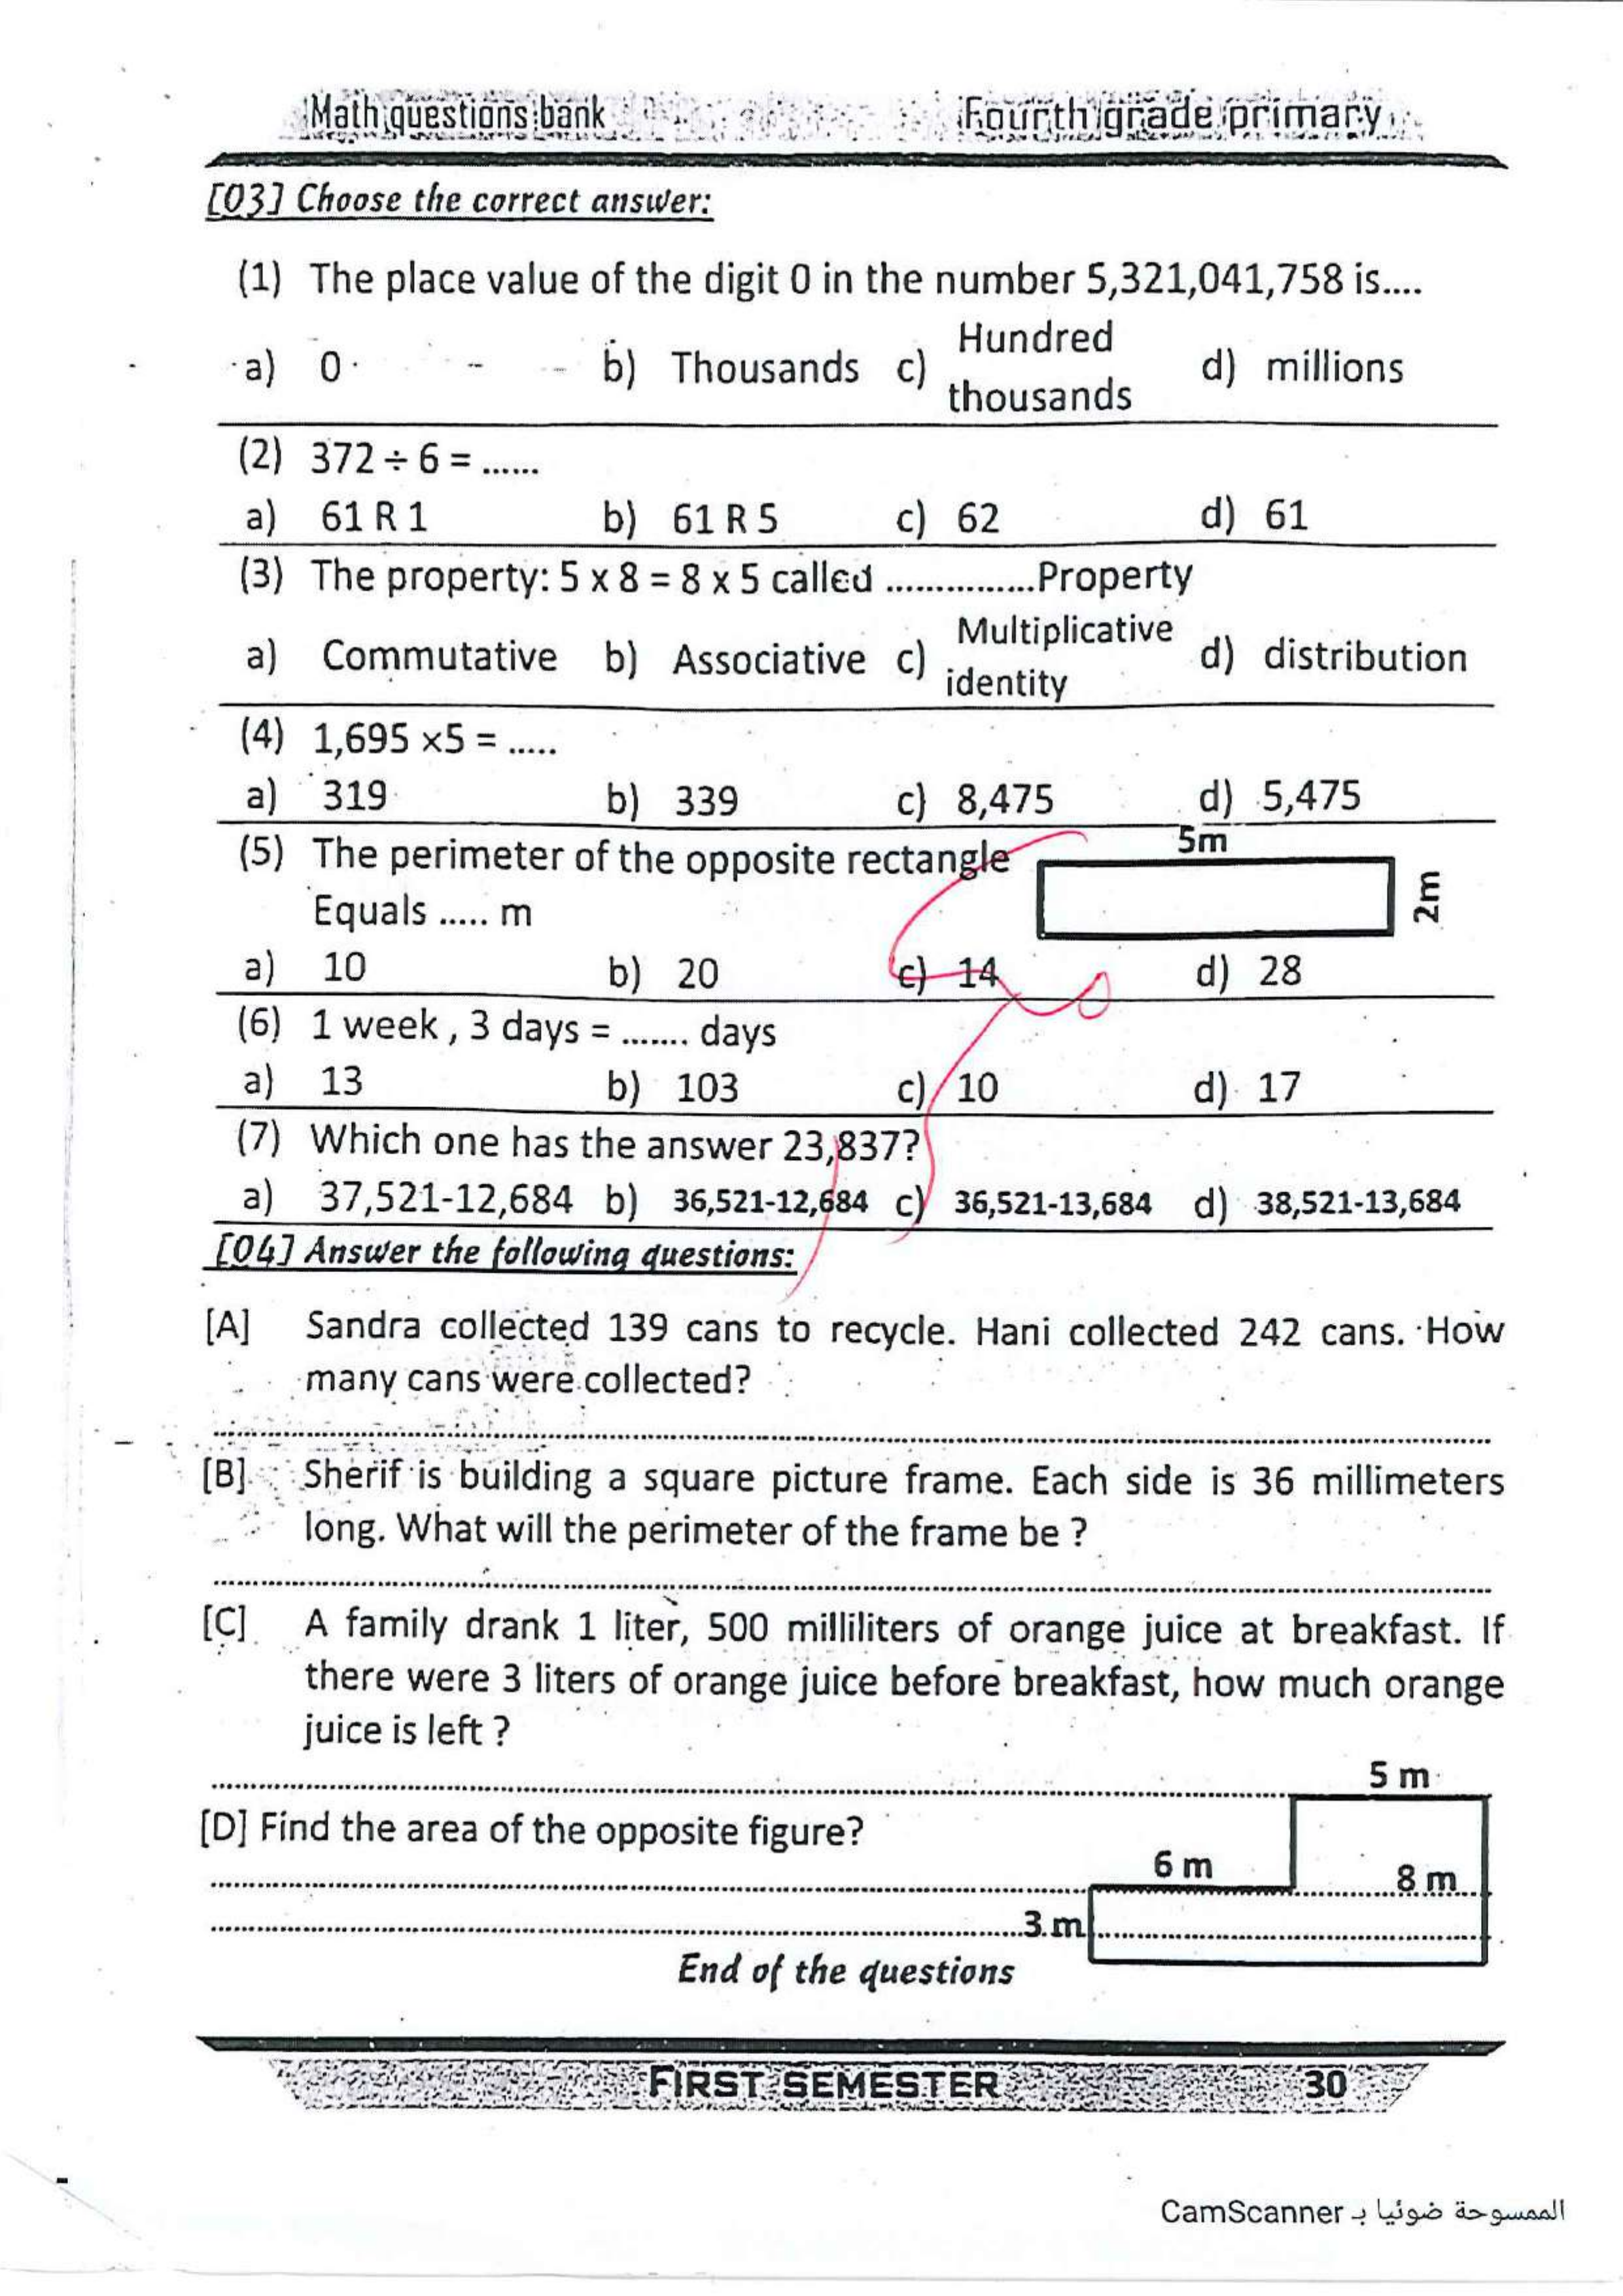 Math questions bank Fourth grade primary
[03] Choose the correct answer:
(1) The place value of the digit 0 in the number 5,321,041,758 is....
a) 0 b) Thousands c) Hundred thousands d) millions
(2) 372 ÷ 6 = ......
a) 61 R 1 b) 61 R 5 c) 62 d) 61
(3) The property: 5 x 8 = 8 x 5 called ...............Property
a) Commutative b) Associative c) Multiplicative identity d) distribution
(4) 1,695 ×5 = .....
a) 319 b) 339 c) 8,475 d) 5,475
(5) The perimeter of the opposite rectangle
5m
2m
Equals ..... m
a) 10 b) 20 c) 14 d) 28
(6) 1 week , 3 days = ....... days
a) 13 b) 103 c) 10 d) 17
(7) Which one has the answer 23,837?
a) 37,521-12,684 b) 36,521-12,684 c) 36,521-13,684 d) 38,521-13,684
[04] Answer the following questions:
[A] Sandra collected 139 cans to recycle. Hani collected 242 cans. How
many cans were collected?
[B] Sherif is building a square picture frame. Each side is 36 millimeters
long. What will the perimeter of the frame be ?
[C] A family drank 1 liter, 500 milliliters of orange juice at breakfast. If
there were 3 liters of orange juice before breakfast, how much orange
juice is left ?
5 m
[D] Find the area of the opposite figure?
6 m
8 m
3 m
End of the questions
FIRST SEMESTER 30
الممسوحة ضوئيا بـ CamScanner